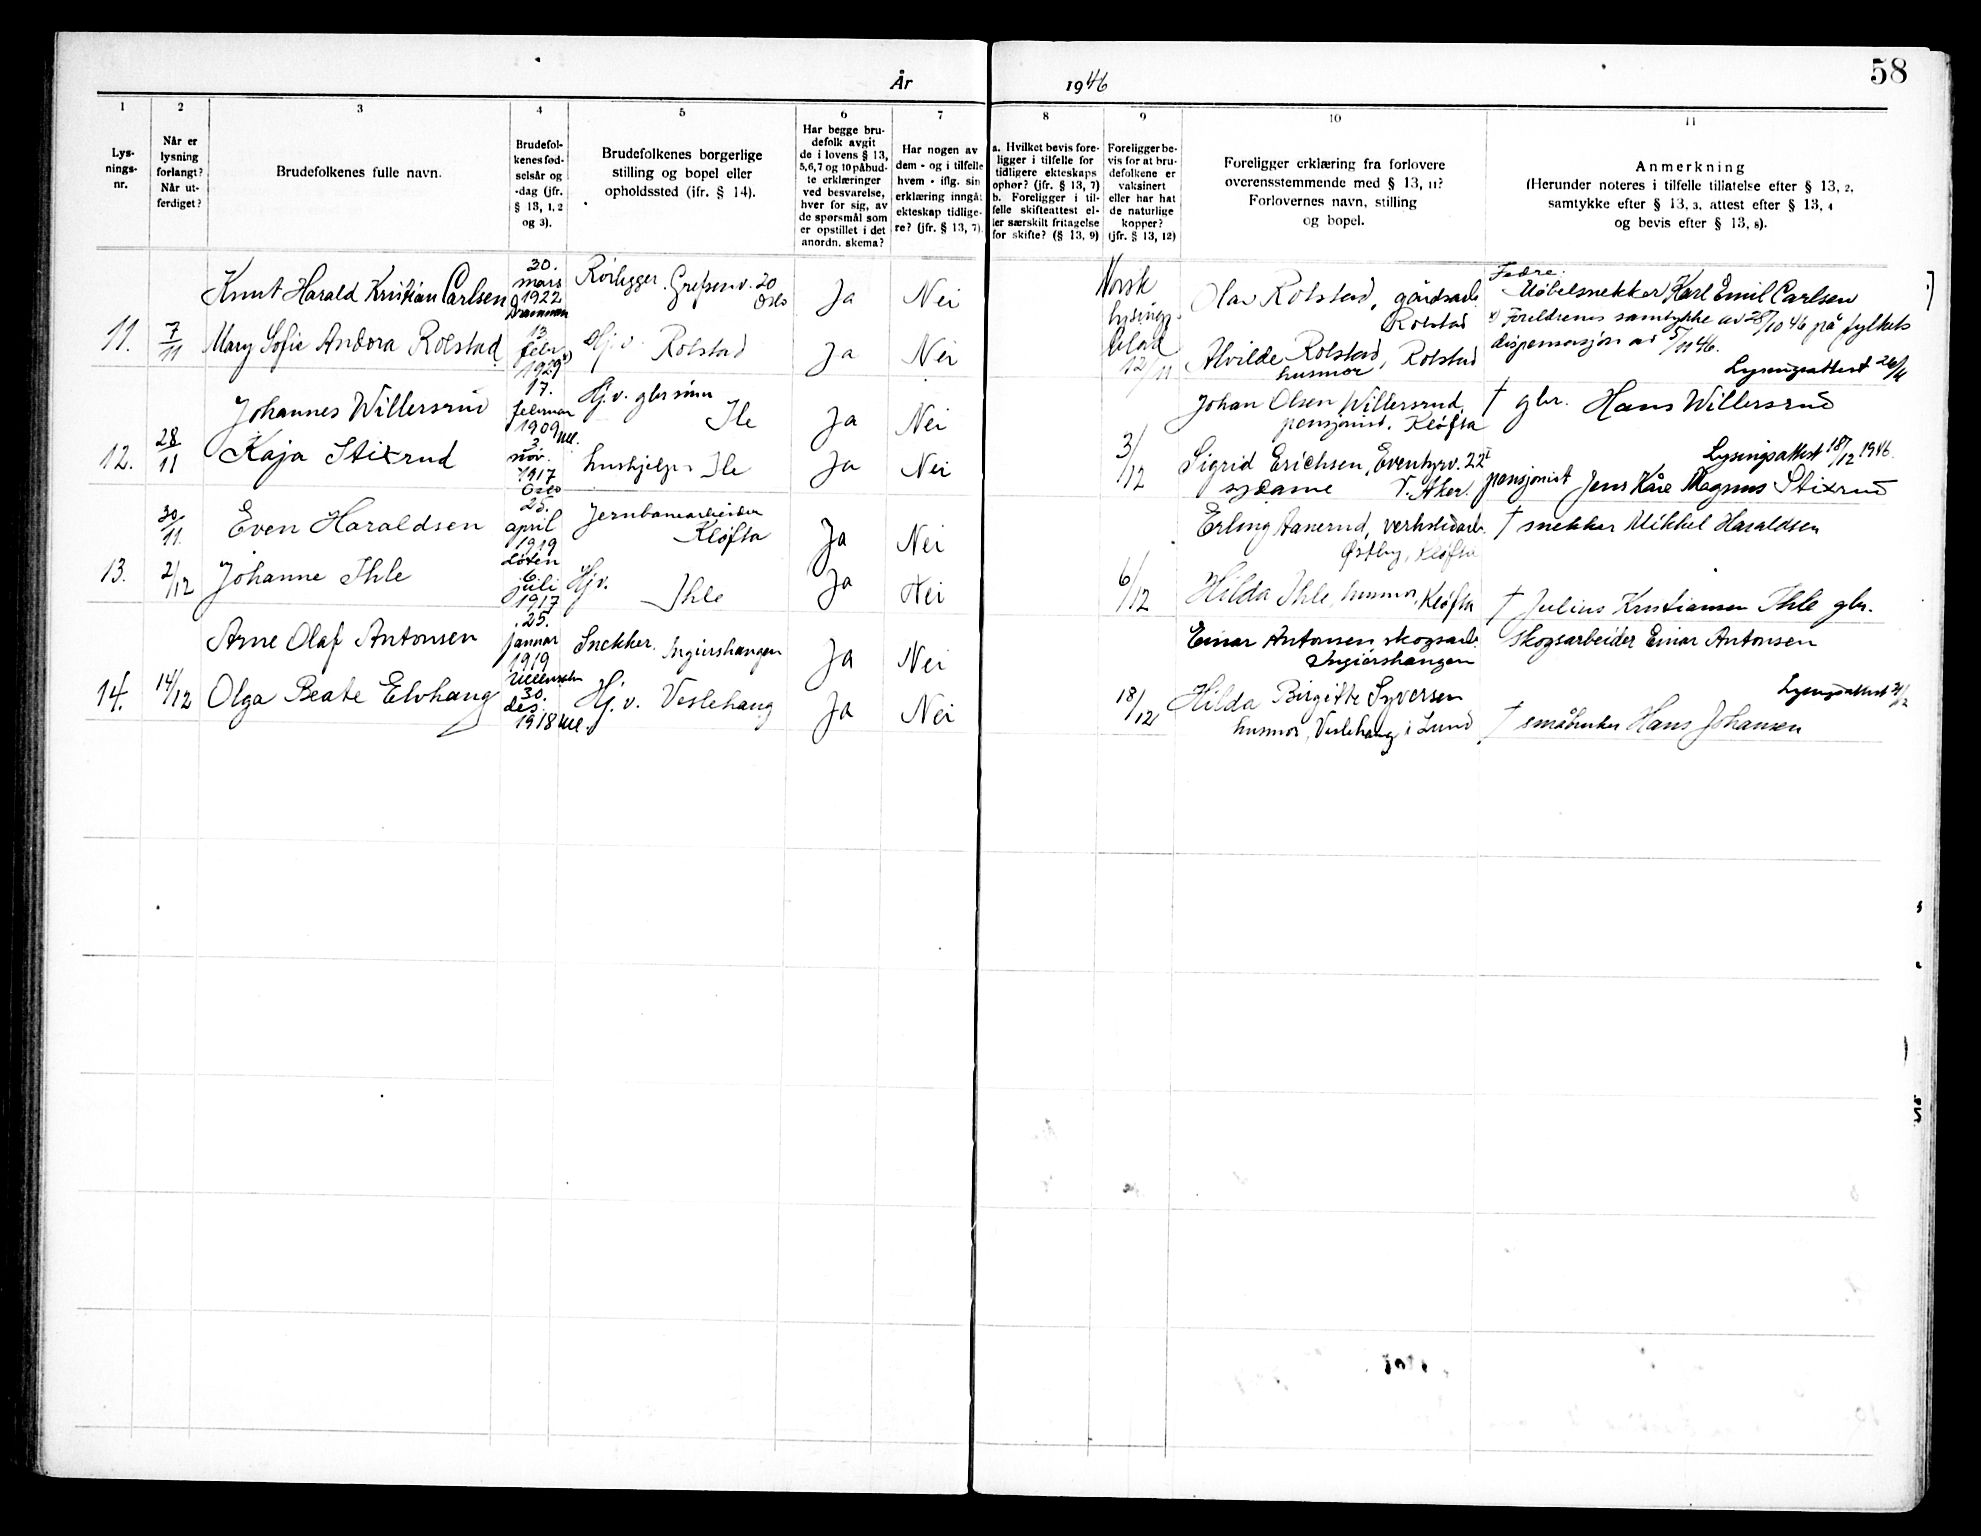 58
År 1946
1 2 3 4 5 6 7 8 9 10 11
Lys-
nings-
nr.
Når er
lysning
forlangt?
Når ut-
ferdiget?
Brudefolkenes fulle navn.
Brudefol-
kenes fød-
selsår og
-dag (jfr.
§ 13, 1, 2
og 3).
Brudefolkenes borgerlige
stilling og bopel eller
opholdssted (jfr. § 14).
Har begge bru-
defolk avgit
de i lovens § 13,
5,6,7 og 10 påbud-
te erklæringer
ved besvarelse,
hver for sig, av
de spørsmål som
er opstillet i det
anordn. skema?
Har nogen av
dem - og i tilfelle
hvem - iflg. sin
erklæring inngåt
ekteskap tidlige-
re? (jfr. § 13, 7).
a. Hvilket bevis fore-
ligger i tilfelle for
tidligere ekteskaps
ophør? (jfr. § 13, 7)
b. Foreligger i til-
felle skifteattest el-
ler særskilt fritagelse
for skifte? (§ 13, 9)
Foreligger be-
vis for at bru-
defolkene er
vaksinert
eller har hat
de naturlige
kopper?
(jfr. § 13, 12)
Foreligger erklæring fra forlovere
overensstemmende med § 13, 11?
Forlovernes navn, stilling
og bopel.
Anmerkning
(Herunder noteres i tilfelle tillatelse efter § 13, 2,
samtykke efter § 13, 3, attest efter § 13, 4
og bevis efter § 13, 8).
11. 7/11
Knut Harald Kristian Carlsen
30.
mars
1922
Drammen
Rørlegger. Grefsenv. 20
Oslo
Ja Nei
Norsk
lysings
blad
12/11
Olav Rolstad, gårdsarb.
Rolstad
Fedre:
Møbelsnekker Karl Emil Carlsen
x) Foreldrenes samtykke av 28/10 46 på fylkets
dispensasjon av 5/11 46.
Lysingsattest 26/11
Mary Sofie Andora Rolstad
13.
febr.
1929 x)
Hj. v. Rolstad
Ja Nei
Alvilde Rolstad, Rolstad
husmor
12. 28/11
Johannes Willersrud
17.
februar
1909 Ull.
Hj. v. gbr sønn
Ile
Ja Nei
Johan Olsen Willersrud,
pensjonist, Kløfta
† gbr. Hans Willersrud
Kaja Stixrud
3.
nov.
1917
Oslo
hushjelp. Ile
Ja Nei
3/12
Sigrid Erichsen, Eventyrv. 22 I
sydame V. Aker.
Lysingsattest 18/12 1946.
pensjonist Jens Kåre Magnus Stixrud
13. 30/11 2/12
Even Haraldsen
25.
april
1919
Løten
Jernbanearbeider
Kløfta
Ja Nei
Erling Aanerud, verkstedarb.
Østby, Kløfta
† snekker Mikkel Haraldsen
Johanne Ihle
6.
juli
1917
Hj v.
Ihle
Ja Nei
6/12
Hilda Ihle, husmor, Kløfta
† Julius Kristiansen Ihle gbr.
14. 14/12
Arne Olaf Antonsen
25.
januar
1919
Ullensaker
Snekker. Ingiershaugen
Ja Nei
Einar Antonsen, skogsarb.
Ingiershaugen
Skogsarbeider Einar Antonsen
Olga Beate Elvhaug
30.
des.
1918 Ull.
Hj. v. Veslehaug
Ja Nei
18/12
Hilda Birgitte Syversen
husmor, Veslehaug i Lund
Lysingsattest 31/12
† småbruker Hans Johansen